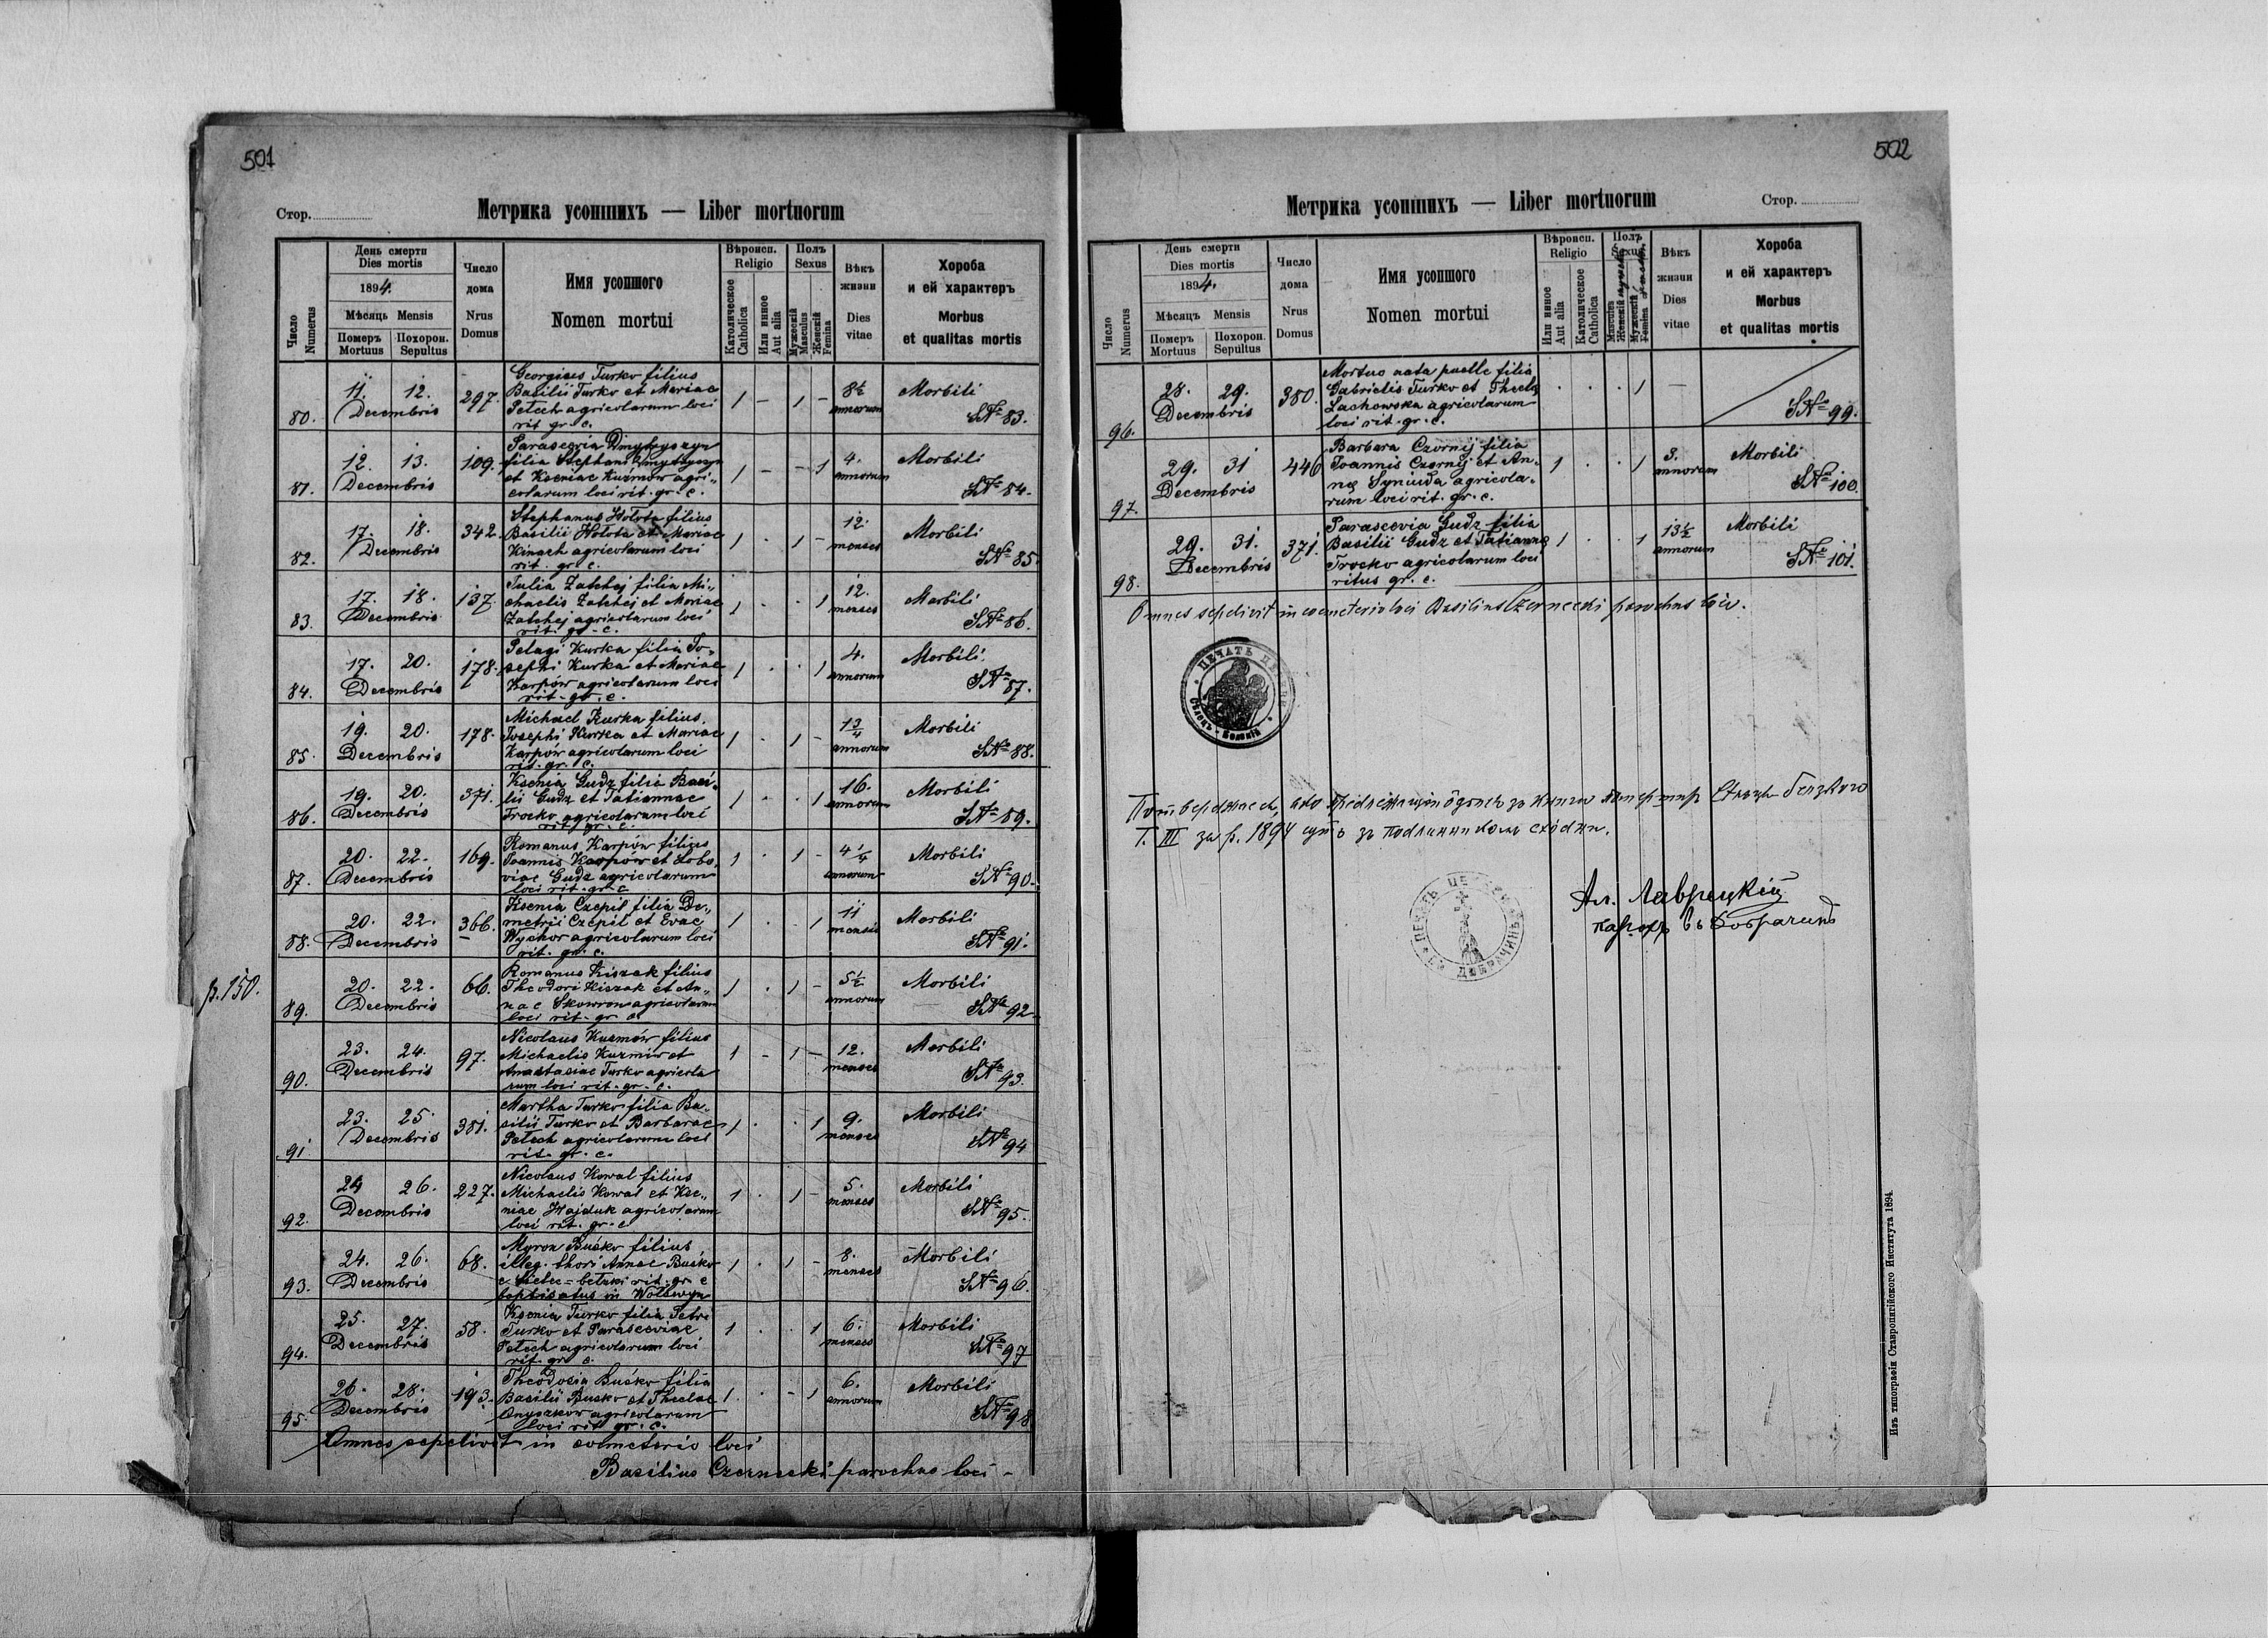 501
Стор.
Метрика усопшихъ — Liber mortuorum
Число
Numerus
День смерти
Dies mortis
1894.
Мѣсяць Mensis
Померъ
Mortuus
Похорон.
Sepultus
Число
дома
Nrus
Domus
Имя усопшого
Nomen mortui
Вѣроисп.
Religio
Католическое
Catholica
Или инное
Aut alia
Полъ
Sexus
Мужескій
Masculus
Женскій
Femina
Вѣкъ
жизни
Dies
vitae
Хороба
и ей характеръ
Morbus
et qualitas mortis
80.
11. 12.
Decembris
297.
Georgius Turko filius
Basilii Turko et Mariae
Petech agricolarum loci
rit. gr. c.
1 - 1 -
8½
annorum
Morbili
S№ 83.
81.
12. 13.
Decembris
109.
Parascevia Dmytryszyn
filia Stephani Dmytryszyn
et Kseniae Kuźmow agri„
colarum loci rit. gr. c.
1 - - 1
4.
annorum
Morbili
S№ 84.
82.
17. 18.
Decembris
342.
Stephanus Hołota filius
Basilii Hołota et Mariae
Kinach agricolarum loci
rit. gr. c.
1 . 1 -
12.
menses
Morbili
S№ 85.
83.
17. 18.
Decembris
137.
Julia Zatchej filia Mi„
chaelis Zatchej et Mariae
Zatchej agricolarum loci
rit. gr. c.
1 . . 1
12.
menses
Morbili
S№ 86.
84.
17. 20.
Decembris
178.
Pelagi Kurka filia Jo„
sephi Kurka et Mariae
Karpów agricolarum loci
rit. gr. c.
1 . . 1
4.
annorum
Morbili.
S№ 87.
85.
19. 20.
Decembris
178.
Michael Kurka filius
Josephi Kurka et Mariae
Karpów agricolarum loci
rit. gr. c.
1 . 1 -
1¾
annorum
Morbili
S№ 88.
86.
19. 20.
Decembris
371.
Ksenia Gudz filia Basi„
lii Gudz et Tatiannae
Trocko agricolarum loci
rit. gr. c.
1 . . 1
16.
annorum
Morbili
S№ 89.
87.
20. 22.
Decembris
169.
Romanus Karpów filius
Joannis Karpów et Lobo„
viae Gudz agricolarum
loci rit. gr. c
1 . 1 -
4¼
annorum
Morbili
S№ 90.
88.
20. 22.
Decembris
366.
Ksenia Czepil filia De„
metrii Czepil et Evae
Wychor agricolarum loci
rit. gr. c.
1 . . 1
11
mensis
Morbili
S№ 91.
p. 150.
89.
20. 22.
Decembris
66.
Romanus Kiszak filius
Theodori Kiszak et An„
nae Skowron agricolarum
loci rit. gr. c.
1 . 1 -
5½
annorum
Morbili
S№ 92
90.
23. 24.
Decembris
97.
Nicolaus Kuzmów filius
Michaelis Kuzmiw et
Anastasiae Turko agricola
rum loci rit. gr. c.
1 - 1 -
12.
menses
Morbili
S№ 93.
91.
23. 25.
Decembris
381.
Martha Turko filia Ba„
silii Turko et Barbarae
Petech agricolarum loci
rit. gr. c.
1 . . 1
9.
menses
Morbili
S№ 94
92.
24 26.
Decembris
227.
Nicolaus Kowal filius
Michaelis Kowal et Kse„
niae Hajduk agricolarum
loci rit. gr. c
1 . 1 -
5.
menses
Morbili
S№ 95.
93.
24. 26.
Decembris
68.
Myron Buśko filius
illeg. thori Annae Buśko
e Sielec-bełzki rit. gr c
baptisatus in Wolswyn
1 . 1 -
8.
menses
Morbili
S№ 96.
94.
25. 27.
Decembris
58.
Ksenia Turko filia Petri
Turko et Parasceviae
Petech agricolarum loci
rit. gr. c.
1 . . 1
6.
menses
Morbili
S№ 97
95.
26. 28.
Decembris
193.
Theodosia Buśko filia
Basilii Buśko et Theclae
Onyszkow agricolarum
loci rit. gr. c.
1 . - 1
6.
annorum
Morbili
S№ 98
Omnes sepelivit in coemeterio loci
Basilius Czernecki parochus loci -
502
Метрика усопшихъ — Liber mortuorum
Стор.
Число
Numerus
День смерти
Dies mortis
1894.
Мѣсяцъ Mensis
Померъ
Mortuus
Похорон.
Sepultus
Число
дома
Nrus
Domus
Имя усопшого
Nomen mortui
Вѣроисп.
Religio
Или инное
Aut alia
Католическое
Catholica
Полъ
Sexus
Masculus
Женскій
Мужескій
Femina
Вѣкъ
жизни
Dies
vitae
Хороба
и ей характеръ
Morbus
et qualitas mortis
96.
28. 29.
Decembris
380.
Mortuo nata puelle filia
Gabrielis Turko et Thecla
Lachowska agricolarum
loci rit. gr. c.
. . . 1
—
S№ 99.
97.
29. 31
Decembris
446
Barbara Czornij filia
Joannis Czornij et An„
nae Syniuda agricola„
rum loci rit. gr. c.
1 . . 1
3.
annorum
Morbili
S№ 100.
98.
29. 31.
Decembris
371.
Parascevia Gudz filia
Basilii Gudz et Tatianna
Trocko agricolarum loci
ritus gr. c.
1 . . 1
13½
annorum
Morbili
S№ 101.
Omnes sepelivit in coemeterio loci Basilius Czernecki parochus loci.
ПЕЧАТЬ
Потверджаеся, яко
Т. III за р. 1894 суть зъ подлинникомъ сходни.
Ал. Лаврецкій
парохъ въ Добрачинѣ
ПЕЧАТЬ ЦЕРК. ДОБРАЧИНЪ
Изъ типографіи Ставропигійского Института 1894.